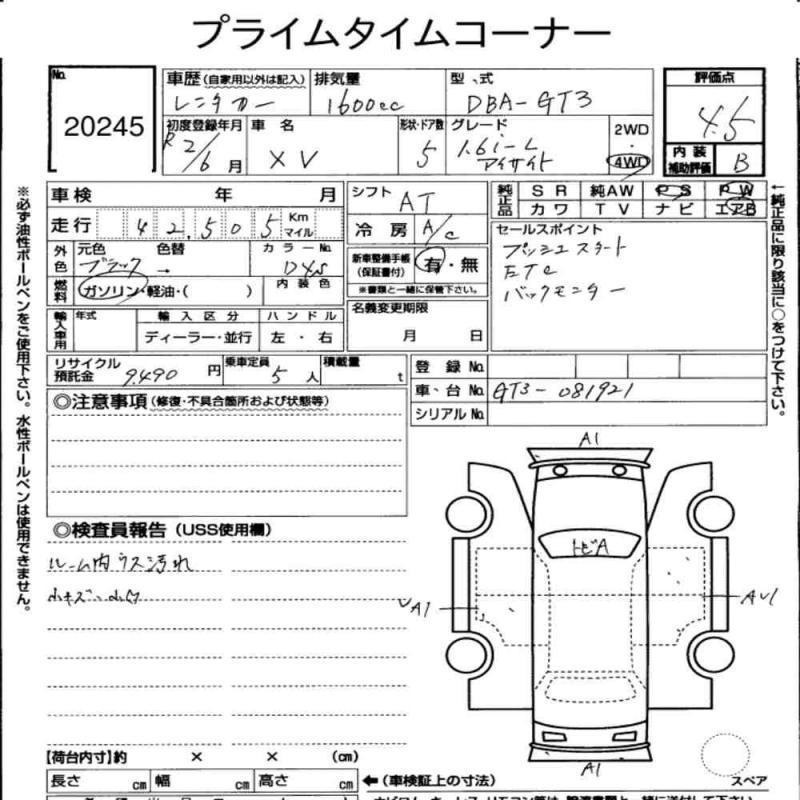 プライムタイムコーナー
No.
20245
車歴 (自家用以外は記入)
レンタカー
排気量
1600cc
型 式
DBA-GT3
評価点
4.5
初度登録年月
R2/6月
車 名
XV
形状・ドア数
5
グレード
1.6i-L
アイサイト
2WD
・
4WD
内 装
補助評価
B
車 検 年 月
走 行 42,505 Km
マイル
シフト AT
冷 房 A/C
純正品
S R 純AW P S P W
カ ワ T V ナ ビ エアB
外色
元色 色替 カラーNo.
ブラック → D4S
燃料
ガソリン・軽油・( )
内 装 色
新車整備手帳
(保証書付)
有・無
※書類と一緒に保管下さい。
セールスポイント
プッシュスタート
ETC
バックモニター
輸入車用
年式 輸 入 区 分 ハ ン ド ル
ディーラー・並行 左・右
名義変更期限
月 日
リサイクル
預託金
9,490 円
乗車定員
5 人
積載量
t
登 録 No.
車 台 No. GT3-081921
シリアル No.
◎注意事項 (修復・不具合箇所および状態等)
◎検査員報告 (USS使用欄)
ルーム内ウス汚れ
小キズ・小凹
A1
トビA
A1
AU1
A1
スペア
【荷台内寸】約 × × (cm)
長さ cm 幅 cm 高さ cm
←(車検証上の寸法)
※必ず油性ボールペンをご使用下さい。水性ボールペンは使用できません。
←純正品に限り該当に○をつけて下さい。